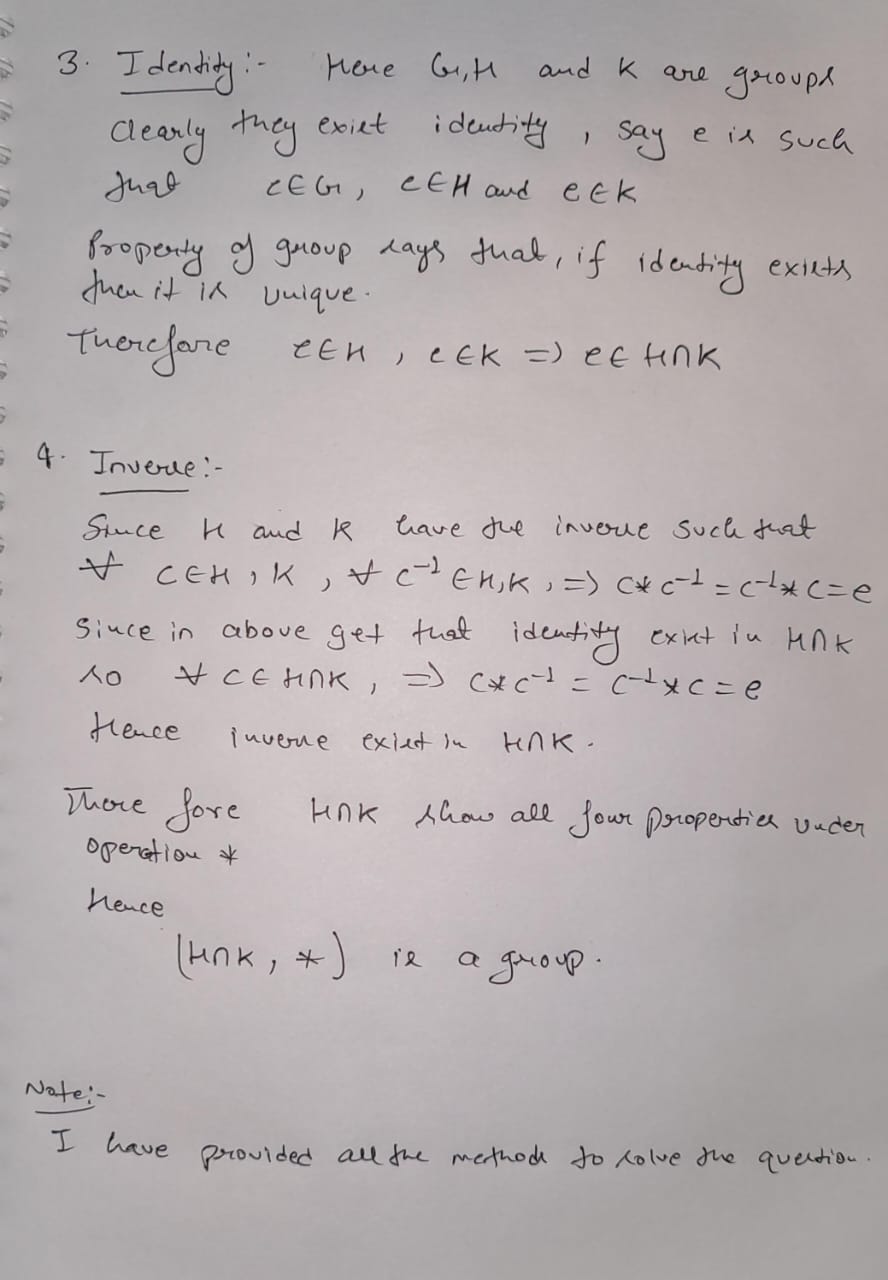 3. Identity:- Here G, H and K are groups
clearly they exist identity, say e is such
that e∈G, e∈H and e∈K
Property of group says that, if identity exists
then it is unique.
Therefore e∈H, e∈K => e∈ H∩K
4. Inverse:-
Since H and K have the inverse such that
∀ c∈H, K, ∀ c⁻¹ ∈H,K, => c*c⁻¹ = c⁻¹*c=e
Since in above get that identity exist in H∩K
so ∀ c∈ H∩K, => c*c⁻¹ = c⁻¹*c=e
Hence inverse exist in H∩K.
There fore H∩K show all four properties under
operation *
Hence
(H∩K, *) is a group.
Note:-
I have provided all the methods to solve the question.